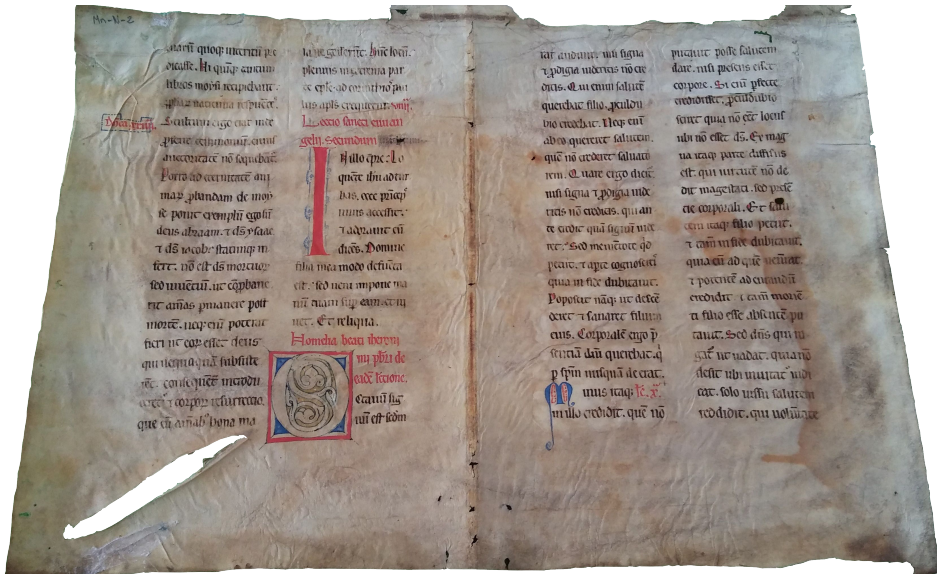 Mn-N-2
narū quoq; interitū pre
dicasse. Hi quinq; tantum
libros moysi recipiebant.
ꝓphar̄ naticinia respuētes.
Stultum ergo erat inde
ꝓferre testimonium. cuius
auctoritatē nō sequebāt̄.
Porro ad eternitatē ani
mar̄ ꝓbandam de moy
se ponit exemplū ego sū
deus abraam. ⁊ ds̄ ysaac
⁊ ds̄ iacob: statimq; in
fert. nō est ds̄ mortuor̄
sed uiuentiū. ut cū ꝓbaue
rit aīmas ꝑmanere post
mortē. neq; enī poterat
fieri ut eor̄ esset deus
qui nequaquā subsiste
rēt. consequēt̄ introdu
ceret̄ ⁊ corpor̄ resurrectio.
que cū aīmab; bona ma
laue gesserūt. Hunc locū.
plenius in extrema par
te eple ad corinthios pau
lus apls exequitur.
Lectio sancti euuan
gelii. Secundum
In illo tp̄re: Lo
quēte ihu ad tur
bas. ecce prīceps
unus accessit.
⁊ adorauit eū
dicēs. Domine
filia mea modo defuncta
est. sed ueni impone ma
nū tuam sup̄ eam et ui
uet. Et reliqua.
Homelia beati iheroni
mi pb̄ri de
eadē lectione.
Octauū sig
nū est in quo
rat audiuit. nisi signa
⁊ ꝓdigia uideritis nō cre
ditis. Qui enim salutē
querebat filio. ꝓculdu
bio credebat. Neq; enī
ab eo quereret salutem.
quē nō crederet saluato
rem. Quare ergo dicit.
nisi signa ⁊ ꝓdigia uide
ritis nō creditis. qui an
te credit quā signum uide
ret. Sed mementote qd̄
petiit. ⁊ aꝑte cognoscitis
quia in fide dubitauit.
Poposcit nāq; ut descē
deret ⁊ sanaret filium
eius. Corporalē ergo p̄
sentiā dn̄i querebat. q̄
ꝑ spm̄ nusquā deerat.
Minus itaq; Lc̄. X.
in illo credidit. quē nō
putauit posse salutem
dare. nisi presens esset
corpore. Si enī ꝑfecte
credidisset. ꝓculdubio
sciret quia nō eēt locus
ubi nō esset ds̄. Ex mag
na itaq; parte diffisus
est. qui uirtutē nō de
dit magestati. sed presē
cie corporali. Et salu
tem itaq; filio petiit.
⁊ tamē in fide dubitauit.
quia eū ad quē uenerat.
⁊ potentē ad curandū
credidit. ⁊ tamē morie
ti filio esse absentē pu
tauit. Sed dn̄s qui ro
gat̄ ut uadat. quia nō
desit ubi inuitat̄ indi
cat. solo iussu salutem
reddidit. qui uoluntate